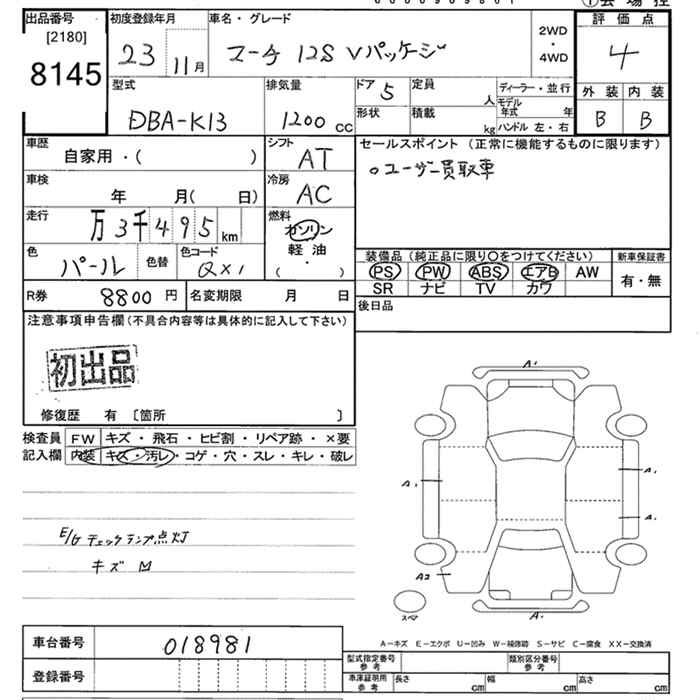 出品番号
[2180]
8145
初度登録年月
23 11月
車名・グレード
マーチ 12S Vパッケージ
2WD
・
4WD
評価点
4
外装 内装
B B
型式
DBA-K13
排気量
1200 cc
ドア 5
形状
定員 人
積載 kg
ディーラー・並行
モデル年式 年
ハンドル 左・右
車歴
自家用・( )
シフト
AT
セールスポイント (正常に機能するものに限ります)
○ユーザー買取車
車検
年 月( 日)
冷房
AC
走行
万3千495 km
燃料
ガソリン
軽油
・
( )
色
パール
色替
色コード
QX1
装備品 (純正品に限り○をつけてください)
PS PW ABS エアB AW
SR ナビ TV カワ
新車保証書
有・無
R券
8800円
名変期限 月 日
後日品
注意事項申告欄(不具合内容等は具体的に記入して下さい)
初出品
修復歴 有 〔箇所 〕
検査員
記入欄
FW キズ・飛石・ヒビ割・リペア跡・×要
内装 キズ・汚レ・コゲ・穴・スレ・キレ・破レ
E/G チェックランプ点灯
キズ
A1
A1
A1
A1
A2
A1
スペア
A-キズ E-エクボ U-凹み W-補修跡 S-サビ C-腐食 XX-交換済
車台番号
018981
登録番号
型式指定番号
参考
類別区分番号
参考
車庫証明用
参考
長さ cm
幅 cm
高さ cm